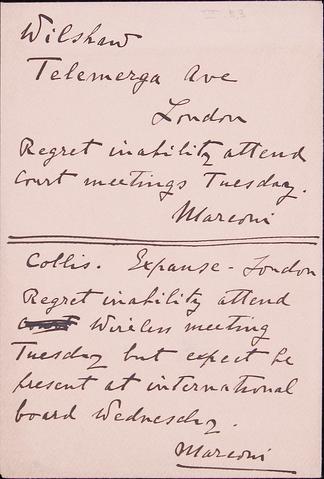 Wilshaw
Telemerga Ave
London
Regret inability attend
Court meetings Tuesday.
Marconi
Collis. Expanse - London
Regret inability attend
Wireless meeting
Tuesday but expect be
present at international
board Wednesday.
Marconi